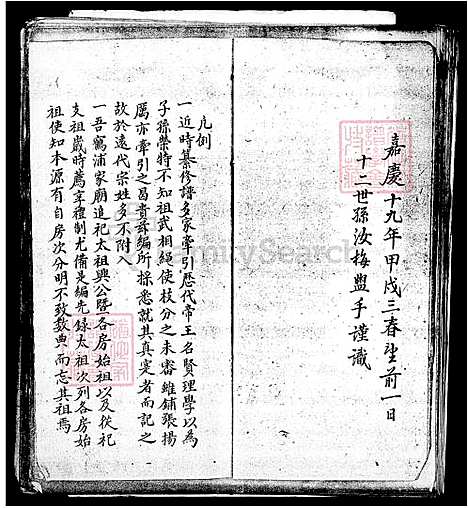 嘉慶十九年甲戌三春望前一日
十二世孫汝梅盥手謹識
凡例
一近時纂修譜多家牽引歷代帝王名賢理學以為
子孫榮特不知祖武相繩使枝分之未審雖鋪張揚
厲亦牽引之曷貴茲編所採悉就其真寔者而記之
故於遠代宗姓多不附入
一吾鶴浦家廟追祀太祖興公暨各房始祖以及從祀
支祖歲時薦享禮制尤備是編先錄太祖次列各房始
祖使知本源有自房次分明不致數典而忘其祖焉
FamilySearch